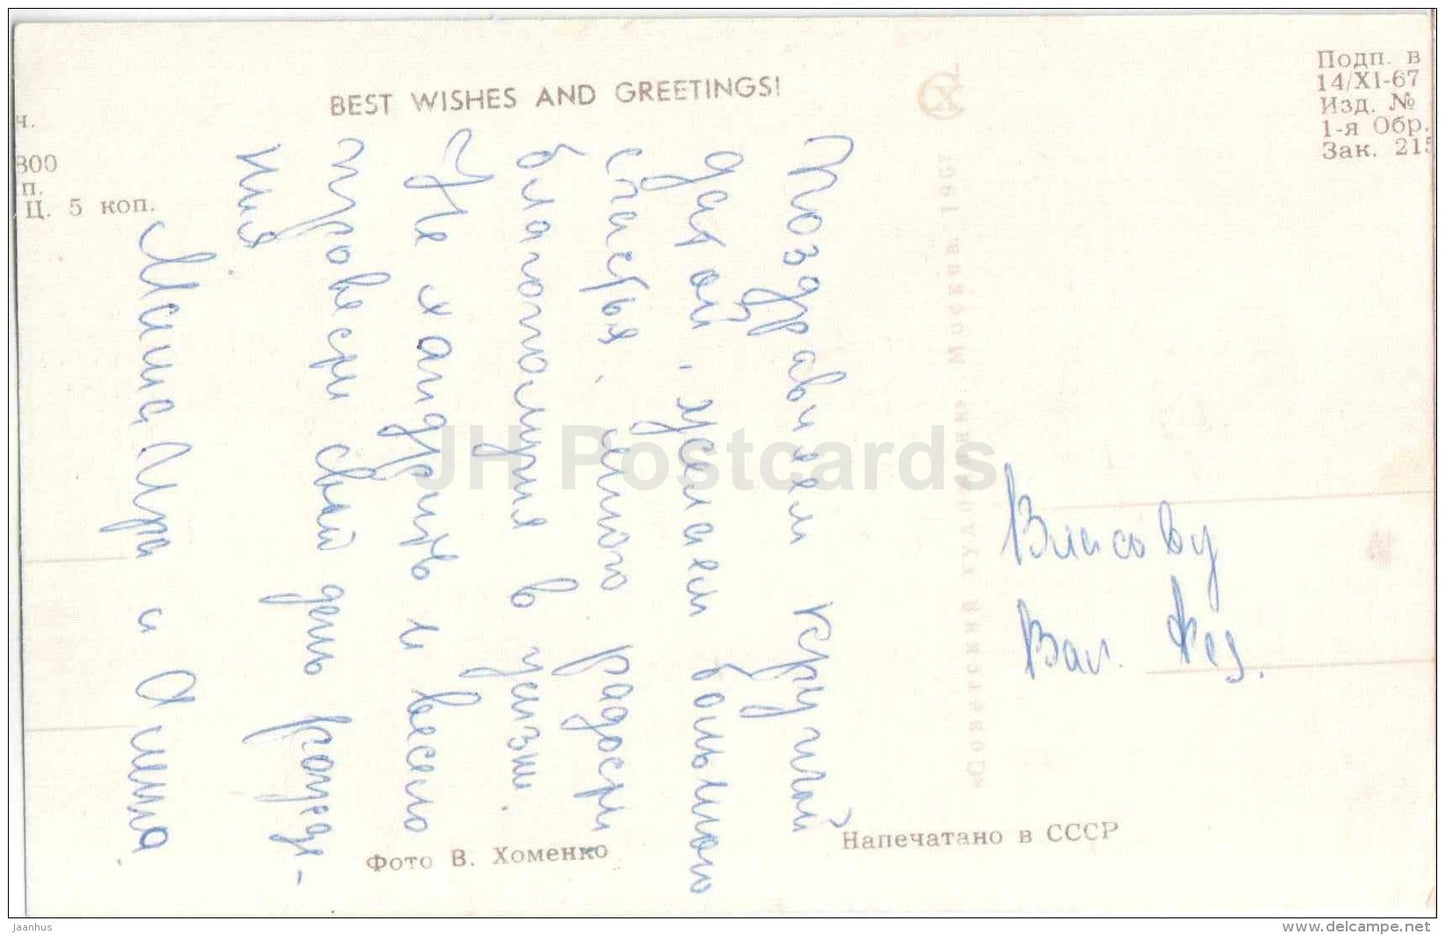 BEST WISHES AND GREETINGS!
Подп. в
14/XI-67
Изд. №
1-я Обр.
Зак. 215
ч.
800
п.
Ц. 5 коп.
Поздравляем с круглой
датой, желаем большого
счастья, много радости
благополучия в жизни.
Не хандрить и весело
провести свой день рожде-
ния
Маша Ира и Алеша
«Советский художник». Москва. 1967
Власову
Вал. Фед.
Фото В. Хоменко
Напечатано в СССР
JH Postcards
jaanhus
www.delcampe.net